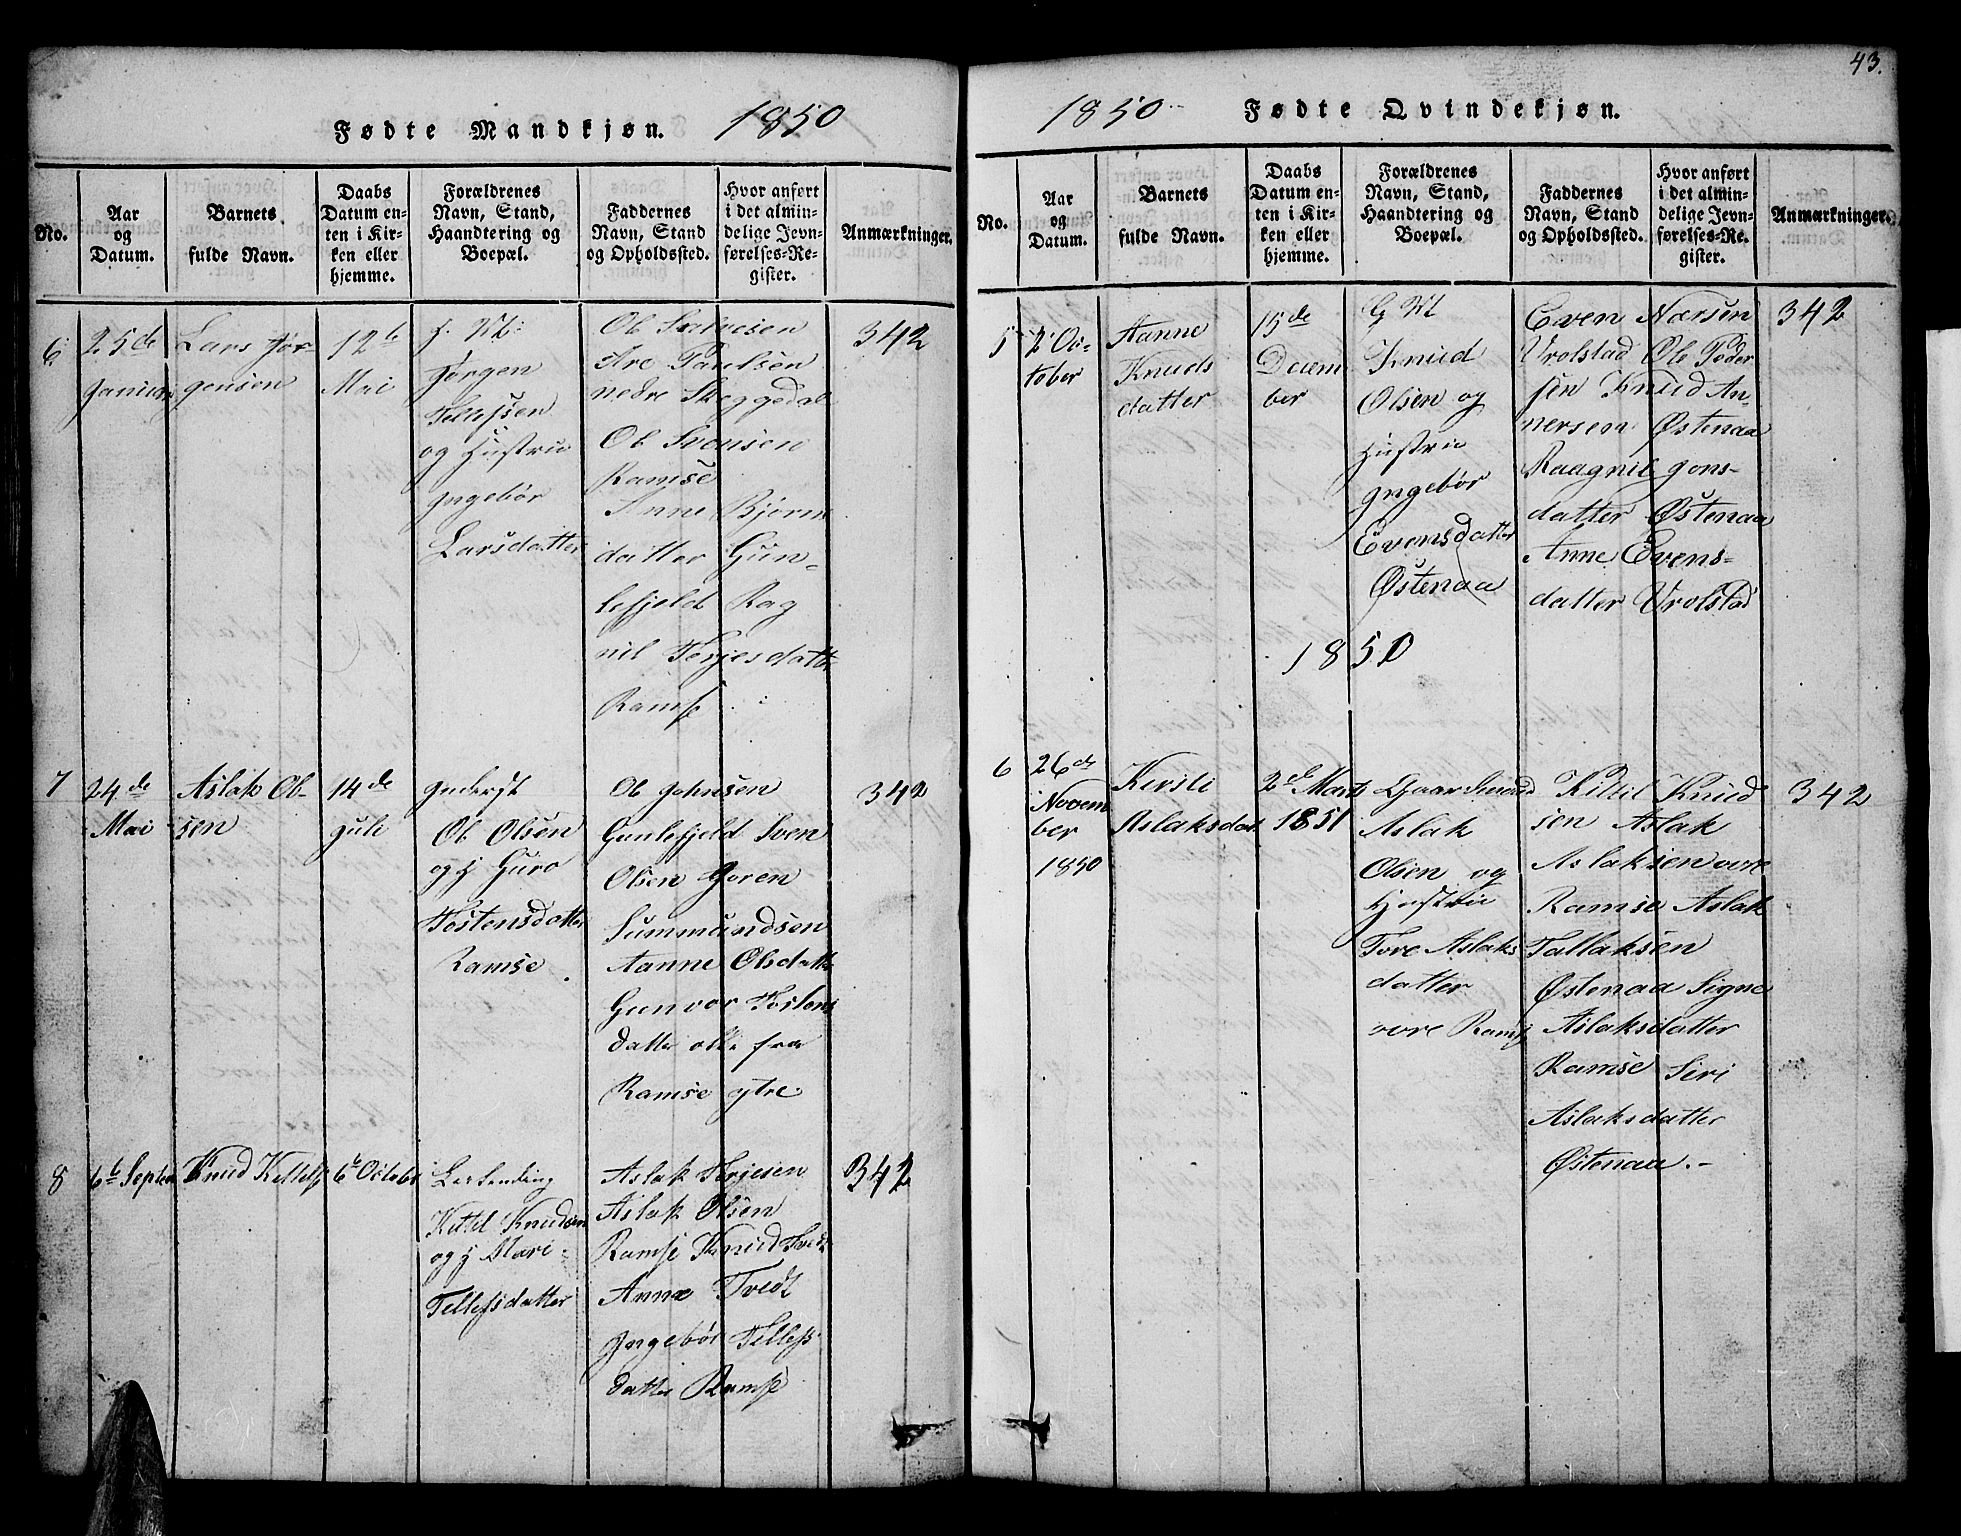 Fødte Mandkjøn. 1850
No.
Aar
og
Datum.
Barnets
fulde Navn.
Daabs
Datum en-
ten i Kir-
ken eller
hjemme.
Forældrenes
Navn, Stand,
Haandtering og
Boepæl.
Faddernes
Navn, Stand
og Opholdssted.
Hvor anført
i det almin-
delige Jevn-
førelses-Re-
gister.
Anmærkninger.
6
25de
Januari
Lars Jör-
gensen
12te
Mai
Jørgen
Tellefsen
og Hustrue
Ingebór
Larsdatter
Ole Salvesen
Are Paulsen
nedre Skeggedal
Ole Svensen
Ramse
Anne Bjorn
datter Gun-
lefjeld Rag
nil Terjesdatter
Ramse
342
7
24de
Mai
Aslak Ol-
sen
14de
Juli
Inderst
Ole Olsen
og h Guro
Tostensdatter
Ramse
Ole Johnsen
Gunlefjeld Sven
Olsen Goren
Summundsen
Aanne Olsdatter
Gunvor Tostens
datter alle fra
Ramse ytre
342
8
6te Septem
Knud Kettels
6te October
Leilending
Kittel Knudsen
og h Mari
Tellefsdatter
Aslak Terjesen
Aslak Olsen
Ramse Knud Tvedt
Anne Tvedt
Ingebór Tellefs
datter Ramse
342
43.
1850 Fødte Qvindekjøn.
No.
Aar
og
Datum.
Barnets
fulde Navn.
Daabs
Datum en-
ten i Kir-
ken eller
hjemme.
Forældrenes
Navn, Stand,
Haandtering og
Boepæl.
Faddernes
Navn, Stand
og Opholdssted.
Hvor anført
i det almin-
delige Jevn-
førelses-Re-
gister.
Anmærkninger.
5
2 Oc-
tober
Aanne
Knuds
datter
15de
Decem
ber
Knud
Olsen og
Hustrue
Ingebór
Evensdatter
Østenaa
Even Nærsen
Vrolstad Ole Peder
sen Knud An-
nersen Østenaa
Raagnil gons-
datter Østenaa
Anne Evens-
datter Vrolstad
342
1850
6
26de
Novem
ber
1850
Kersti
Aslaksdat
2de Marts
1851
Gaardmand
Aslak
Olsen og
Hustrue
Tore Aslaks
datter
övre Ramse
Kittil Knud
sen Aslak
Aslaksen övre
Ramse Aslak
Tallaksen
Østenaa Signe
Aslaksdatter
Ramse Siri
Aslaksdatter
Østenaa.-
342